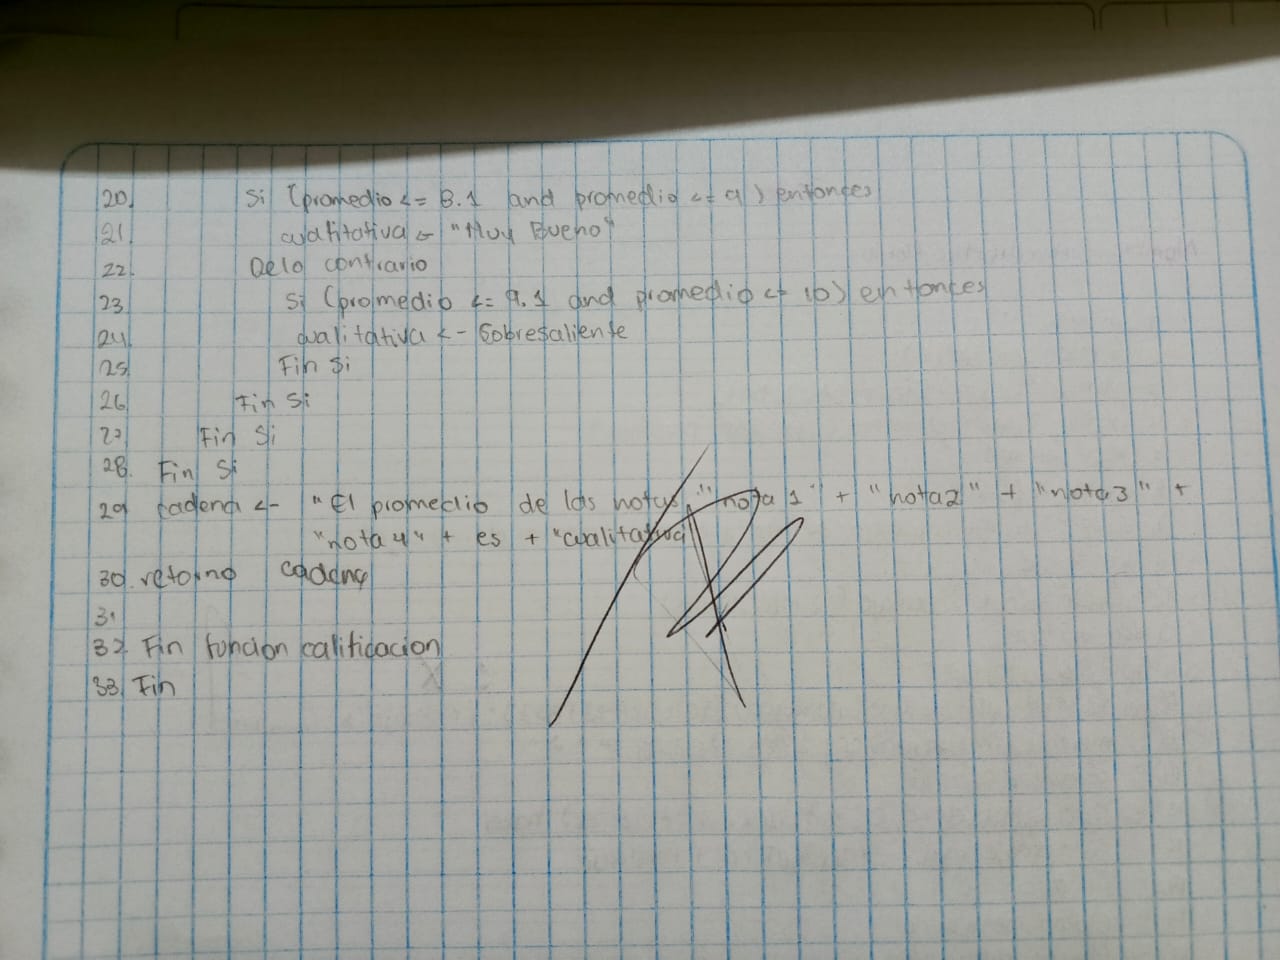 20. Si (promedio <= 8.1 and promedio <= 9) entonces
21. cualitativa <- "Muy Bueno"
22. Delo contrario
23. Si (promedio <= 9.1 and promedio <= 10) entonces
24. cualitativa <- Sobresaliente
25. Fin Si
26. Fin Si
27. Fin Si
28. Fin Si
29. cadena <- "El promedio de las notas," "nota 1" + "nota2" + "nota3" +
"nota4" + es + "cualitativa
30. retorno cadena
31
32. Fin funcion calificacion
33. Fin